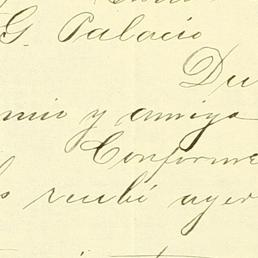 G. Palacio
Du
mio y amigo
Conforme
recibí ayer